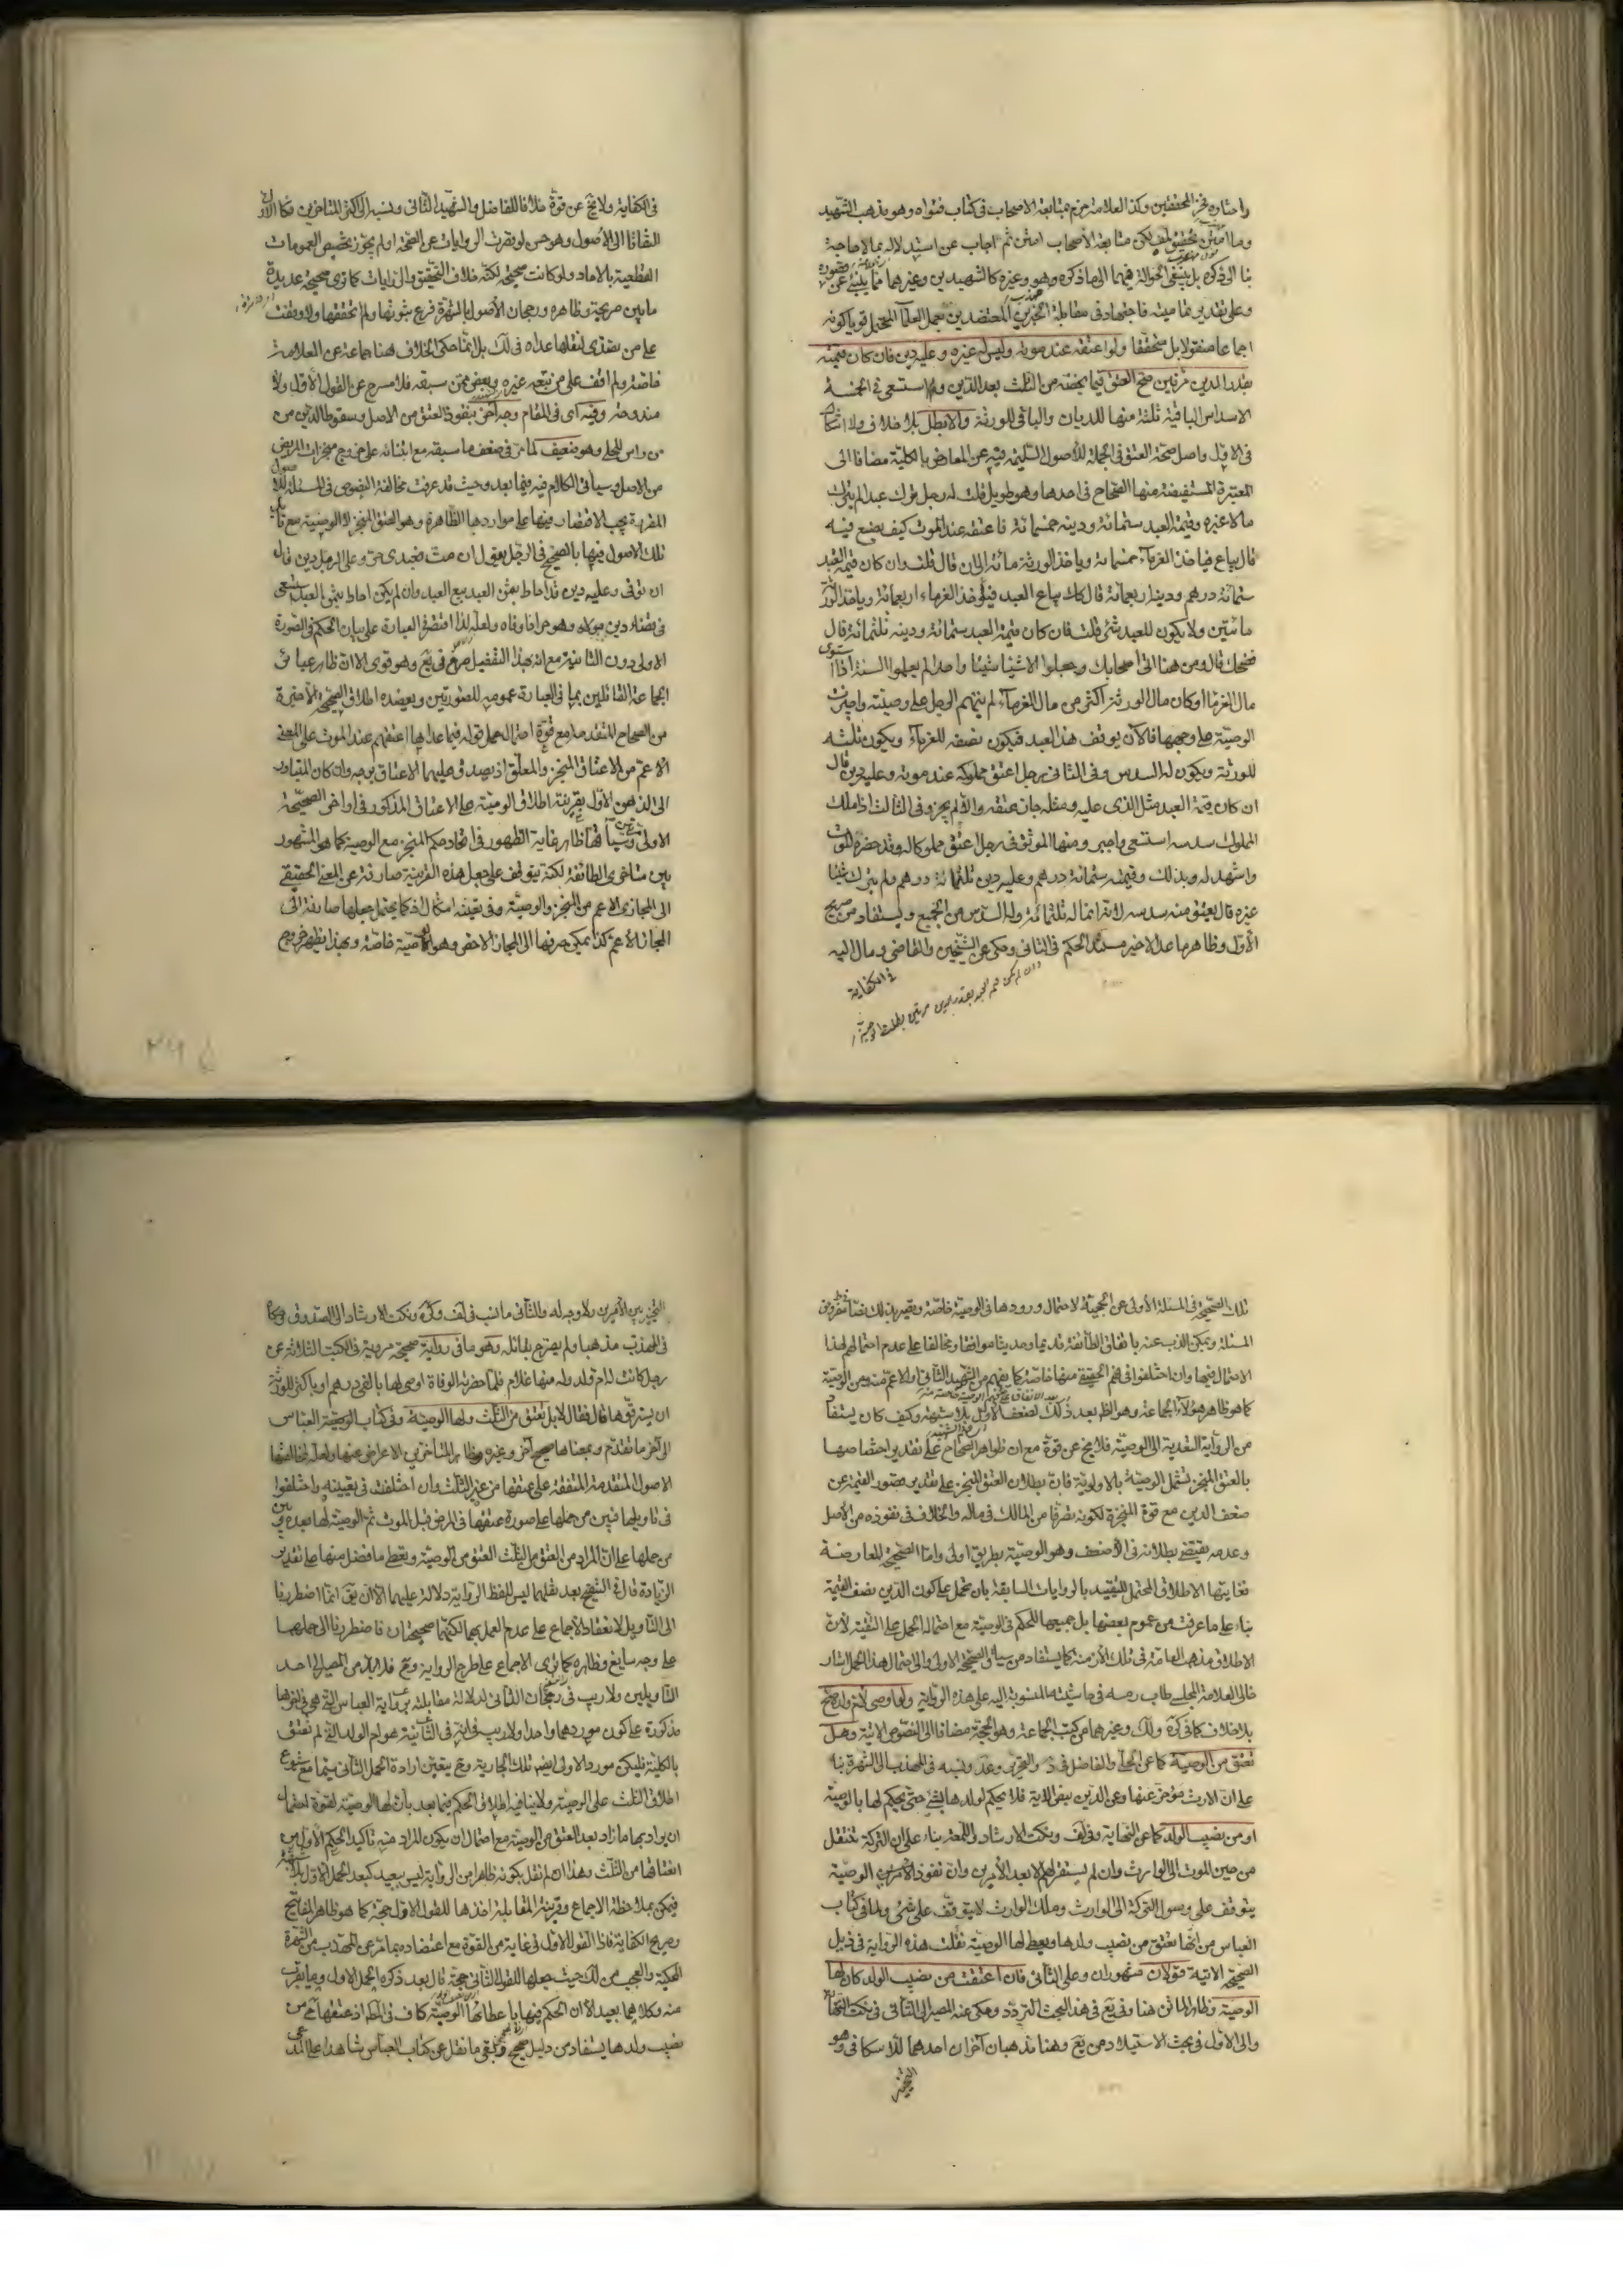 واختاره فخر المحققين وكذا العلامة جزم بمتابعة الاصحاب في كتاب فتواه وهو مذهب الشهيد
متابعة الأصحاب امتن ثم اجاب عن استدلاله بما لا حاجة
بنا الى ذكره بل ينبغي الحوالة فيهما الى ما ذكره وهو وغيره كالشهيدين وغيرهما مما ينبئ عن
وعلى تقدير تماميته فاجتهاد في مقابلة الخبرين المعتضدين بعمل العلماء المحتمل قويا كونه
اجماعا منقولا بل محققا ولو اعتقه عند موته وليس له غيره وعليه دين فان كان قيمته
بقدر الدين مرتين صح العتق فيما يخصه من الثلث بعد الدين و استسعى في الخمسة
الاسداس الباقية ثلثة منها للديان والباقي للورثة والا بطل بلا خلاف ولا اشكال
في الاول واصل صحة العتق في الجملة للأصول السليمة فيه عن المعارض بالكلية مضافا الى
المعتبرة المستفيضة منها الصحاح في احدها وهو طويل قلت له رجل ترك عبدا لم يترك
مالا غيره وقيمة العبد ستمائة ودينه خمسمائة فاعتقه عند الموت كيف يصنع فيه
قال يباع فياخذ الغرماء خمسمائة وياخذ الورثة مائة الى ان قال قلت وان كان قيمة العبد
ستمائة درهم ودينه اربعمائة قال كذلك يباع العبد فيأخذ الغرماء اربعمائة وياخذ الورثة
مائتين ولا يكون للعبد شئ قلت فان كان قيمة العبد ستمائة ودينه ثلثمائة قال
فضحك قال ومن هنا اتى اصحابك وجعلوا الاشياء شيئا واحدا لم يعلموا السنة اذا استوى
مال الغرماء او كان مال الورثة اكثر من مال الغرماء لم يتهم الرجل على وصيته واجيزت
الوصية على وجهها فالآن يوقف هذا العبد فيكون نصفه للغرماء ويكون ثلثه
للورثة ويكون له السدس وفي الثاني رجل اعتق مملوكه عند موته وعليه دين قال
ان كان قيمة العبد مثل الذي عليه ومثله جاز عتقه والا لم يجز وفي الثالث اذا ملك
المملوك سدسه استسعى واجيز ومنها الموثق في رجل اعتق مملوكا له وقد حضره الموت
واشهد له بذلك وقيمته ستمائة درهم وعليه دين ثلثمائة درهم ولم يترك شيئا
غيره قال يعتق منه سدسه لانه انما له ثلثمائة وله السدس من الجميع ويستفاد من صريح
الأول وظاهر ما عدا الاخير مستند الحكم في الثاني وحكي عن الشيخين والقاضي ومال اليه
في الكفاية
في الكفاية ولا يخ عن قوة خلافا للفاضل والشهيد الثاني ونسبه الى اكثر المتاخرين فكالاول
التفاتا الى الأصول وهو حسن لو تعرت الروايات عن الصحة او لم يجوز تخصيص العمومات
القطعية بالاحاد ولو كانت صحيحة لكنه خلاف التحقيق والروايات كما ترى صحيحة عديدة
ما بين صريحة وظاهره ورجحان الأصول بالشهرة فرع ثبوتها ولم اتحققها ولا وقفت
على من تصدى لنقلها عداه في لك بل انما حكى الخلاف هنا جماعة عن العلامة
خاصة ولم اقف على من تبعه غيره وبعض ممن سبقه فلا مسرح عن القول الاول ولا
مندوحة وفيه اى في المقام وجه آخر بنفوذ العتق من الاصل وسقوط الدين من
من راس للحلي وهو ضعيف لما مر في ضعف ما سبقه مع ابتنائه على خروج منجزات المريض
من الاصل وسيأتي الكلام فيه فيما بعد وحيث قد عرفت مخالفة النصوص في المسئلة للاصول
المقررة يجب الاقتصار فيها على مواردها الظاهرة وهو العتق المنجز لا الوصية مع تأيد
تلك الاصول فيها بالصحيح في الرجل يقول ان مت فعبدي حر وعلى الرجل دين قال
ان توفى وعليه دين قد احاط بثمن العبد بيع العبد وان لم يكن احاط بثمن العبد استسعى
في قضاء دين مولاه وهو حر اذا وفاه ولعله لذا اقتصر العبارة على بيان الحكم في الصورة
الاولى دون الثانية مع انه بهذا التفصيل صرح في يع وهو قوى الا ان ظاهر عبائر
الجماعة القائلين بما في العبارة عمومه للصورتين ويعضده اطلاق الصحيح الاخيرة
من الصحاح المتقدمة مع قوة احتمال حمل قوله فيما عداها اعتقهم عند الموت على المعنى
الاعم من الاعتاق المنجز والمعلق اذ يصدق عليهما الاعتاق بوجه وان كان المتبادر
الى الذهن الأول بقرينة اطلاق الوصية على الاعتاق المذكور في اواخر الصحيحة
الاولى وسياقها ظاهر غاية الظهور في اتحاد حكم المنجز مع الوصية كما هو المشهور
بين متأخري الطائفة لكنه يتوقف على جعل هذه القرينة صارفة عن المعنى الحقيقي
الى المجازى الاعم من المنجز والوصية وفي تعينه اشكال اذ كما يحتمل جعلها صارفة الى
المجاز الأعم كذا يمكن صرفها الى المجاز الاخص وهو الوصية خاصة وبهذا يظهر خروج
تلك الصحيحة في المسئلة الأولى عن الحجية لاحتمال ورودها في الوصية خاصة ويصير بذلك نصا مفروض
المسئلة ويمكن الذب عنه باتفاق الطائفة قديما وحديثا موافقا ومخالفا على عدم احتمالهم لهذا
الاحتمال فيها وان اختلفوا في فهم الحقيقة منها خاصة كما يفهم من الشهيد الثاني او الاعم منه ومن الوصية
كما هو ظاهر هؤلاء الجماعة وهو الظ بعد ذلك لضعف الأول بلا شبهة وكيف كان يستفاد
من الرواية التعدية الى الوصية فلا يخ عن قوة مع ان ظواهر الصحاح على تقدير اختصاصها
بالعتق المنجز تشمل الوصية بالاولوية فان بطلان العتق المنجز على تقدير قصور القيمة عن
ضعف الدين مع قوة المنجزة لكونه تصرفا من المالك في ماله والخلاف في نفوذه من الأصل
وعدمه يقتضي بطلانه في الأضعف وهو الوصية بطريق اولى واما الصحيح المعارضة
فغايتها الاطلاق المحتمل للتقييد بالروايات السابقة بان تحمل على كون الدين نصف القيمة
بناء على ما عرفت من عموم بعضها بل جميعها للحكم في الوصية مع احتماله الحمل على التقية لأن
الاطلاق مذهب العامة في تلك الأزمنة كما يستفاد من سياق الصحيحة الاولى والى احتمال هذا الحمل اشار
خالي العلامة المجلسي طاب رمسه في حاشيته المنسوبة اليه على هذه الرواية ولو اوصى لأم ولده صح
بلا خلاف كما في كره ولك وغيرهما من كتب الجماعة وهو الحجة مضافا الى النصوص الاتية وهل
تعتق من الوصية كما عن الحلي والفاضل في والتحرير وعد ونسبه في المهذب الى الشهرة بناء
على ان الارث مؤخر عنها وعن الدين بنص الآية فلا يحكم لولدها بشئ حتى يحكم لها بالوصية
او من نصيب الولد كما عن النهاية وفي لف ونكت الارشاد واللمعة بناء على ان التركة تنتقل
من حين الموت الى الوارث وان لم يستقر لهم الا بعد الأمرين وان نفوذ الوصية
يتوقف على وصول التركة الى الوارث وملك الوارث لا يتوقف على شئ ولما في كتاب
العباس من انها تعتق من نصيب ولدها ويعطى لها الوصية نقلت هذه الرواية في ذيل
الصحيحة الاتية قولان مشهوران وعلى الثاني فان اعتقت من نصيب الولد كان لها
الوصية وظاهر الماتن هنا وفي يع في هذا البحث التردد وحكي عنه المصير الى الثاني في نكت النهاية
والى الاول في بحث الاستيلاد من يع وهنا مذهبان آخران احدهما للاسكافي وهو
التخيير
التخيير بين الأمرين ولا وجه له والثاني ما نسب في لف وكره ونكت الارشاد الى الصدوق وحكاه
في المهذب مذهبا ولم يصرح بقائله وهو ما في رواية صحيحة مروية في الكتب الثلاثة عن
رجل كانت له ام ولد وله منها غلام فلما حضرته الوفاة اوصى لها بالفي درهم او باكثر للورثة
ان يسترقوها قال فقال لا بل تعتق من الثلث ولها الوصية وفي كتاب الوصية العباس
الى آخر ما تقدم وبمعناها صحيح آخر وغيره وظاهر المتأخرين الاعراض عنها ولعله لمخالفتها
الاصول المتقدمة المتفقة على عتقها من غير الثلث وان اختلفت في تعيينه واختلفوا
في تاويلها فبين من حملها على صورة عتقها في المرض قبل الموت ثم الوصية لها بعده وبين
من حملها على ان المراد من العتق من الثلث العتق من الوصية ويعطى ما فضل منها على تقدير
الزيادة قال في التنقيح بعد نقلهما ليس للفظ الرواية دلالة عليهما الا ان نق انما اضطررنا
الى التاويل لانعقاد الأجماع على عدم العمل بهما لكنهما صحيحتان فاضطررنا الى حملهما
على وجه سايغ وظاهره كما ترى الاجماع على طرح الرواية وح فلا بد من المصير الى احد
التاويلين ولا ريب في رجحان الثاني لدلالة مقابلته برواية العباس التي هي في اخرها
مذكورة على كون موردهما واحدا ولا ريب في انه في الثانية هو ام الولد التي لم تعتق
بالكلية فليكن مورد الاولى ايضا تلك الجارية وح يتعين ارادة الحمل الثاني سيما مع شيوع
اطلاق الثلث على الوصية ولا ينافيه اطلاق الحكم فيما بعد بان لها الوصية لقوة احتمال
ان يراد بها ما زاد بعد العتق من الوصية مع احتمال ان يكون المراد منه تاكيد الحكم الأول من
انعتاقها من الثلث وهذا ان لم نقل بكونه ظاهرا من الرواية ليس ببعيد كبعد الحمل الاول بلا شبهة
فيمكن بملاحظة الاجماع وقرينة المقابلة اخذها للقول الاول حجة كما هو ظاهر المفاتيح
وصريح الكفاية فاذا القول الاول في غاية من القوة مع اعتضاده بما مر عن المهذب من الشهرة
المحكية والعجب من لك حيث جعلها للقول الثاني حجة قال بعد ذكره الحمل الاول وما يقرب
منه وكلاهما بعيد الا ان الحكم فيها باعطائها الوصية كاف في المط اذ عتقها ح من
نصيب ولدها يستفاد من دليل صحيح ويبقى ما نقل عن كتاب العباس شاهدا على المدعى